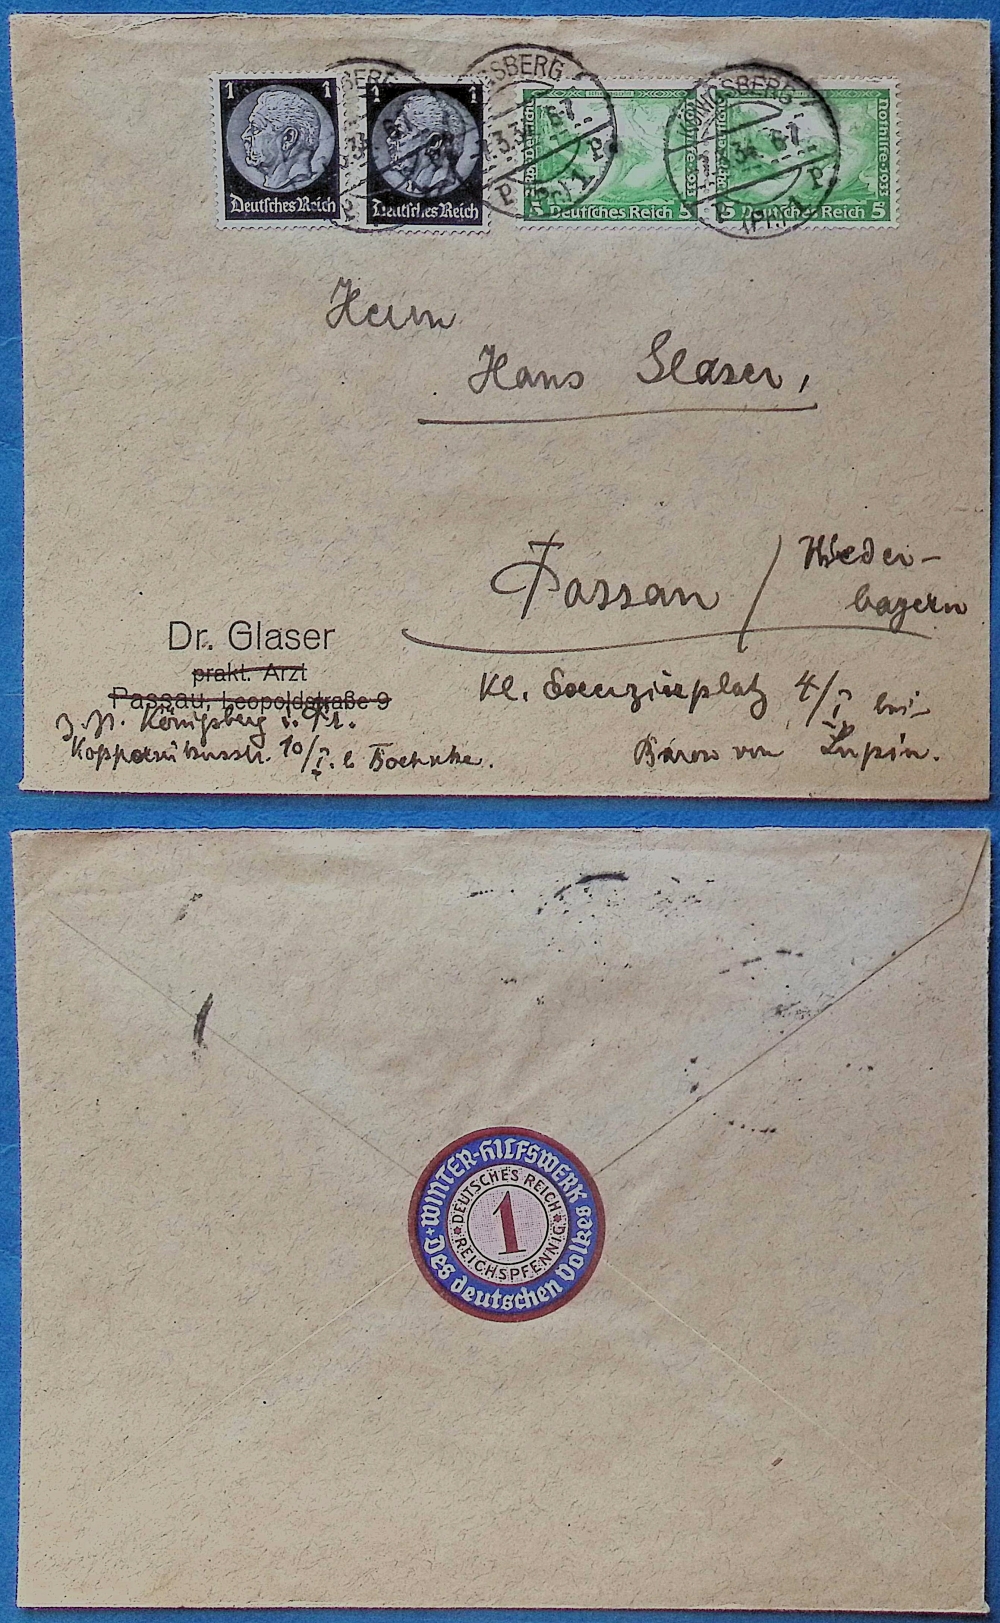 1 1
Deutsches Reich
1 1
Deutsches Reich
Nothilfe·1933
5 Deutsches Reich 5
Nothilfe·1933
5 Deutsches Reich 5
KÖNIGSBERG
(Pr) 1
Herrn
Hans Glaser,
Passau / Nieder-
bayern
Kl. Exerzierplatz 4/I bei
Baron von Lupin.
Dr. Glaser
prakt. Arzt
Passau, Leopoldstraße 9
z. Zt. Königsberg i. Pr.
10/I. b
WINTER-HILFSWERK
Des deutschen Volkes
DEUTSCHES REICH
1
REICHSPFENNIG